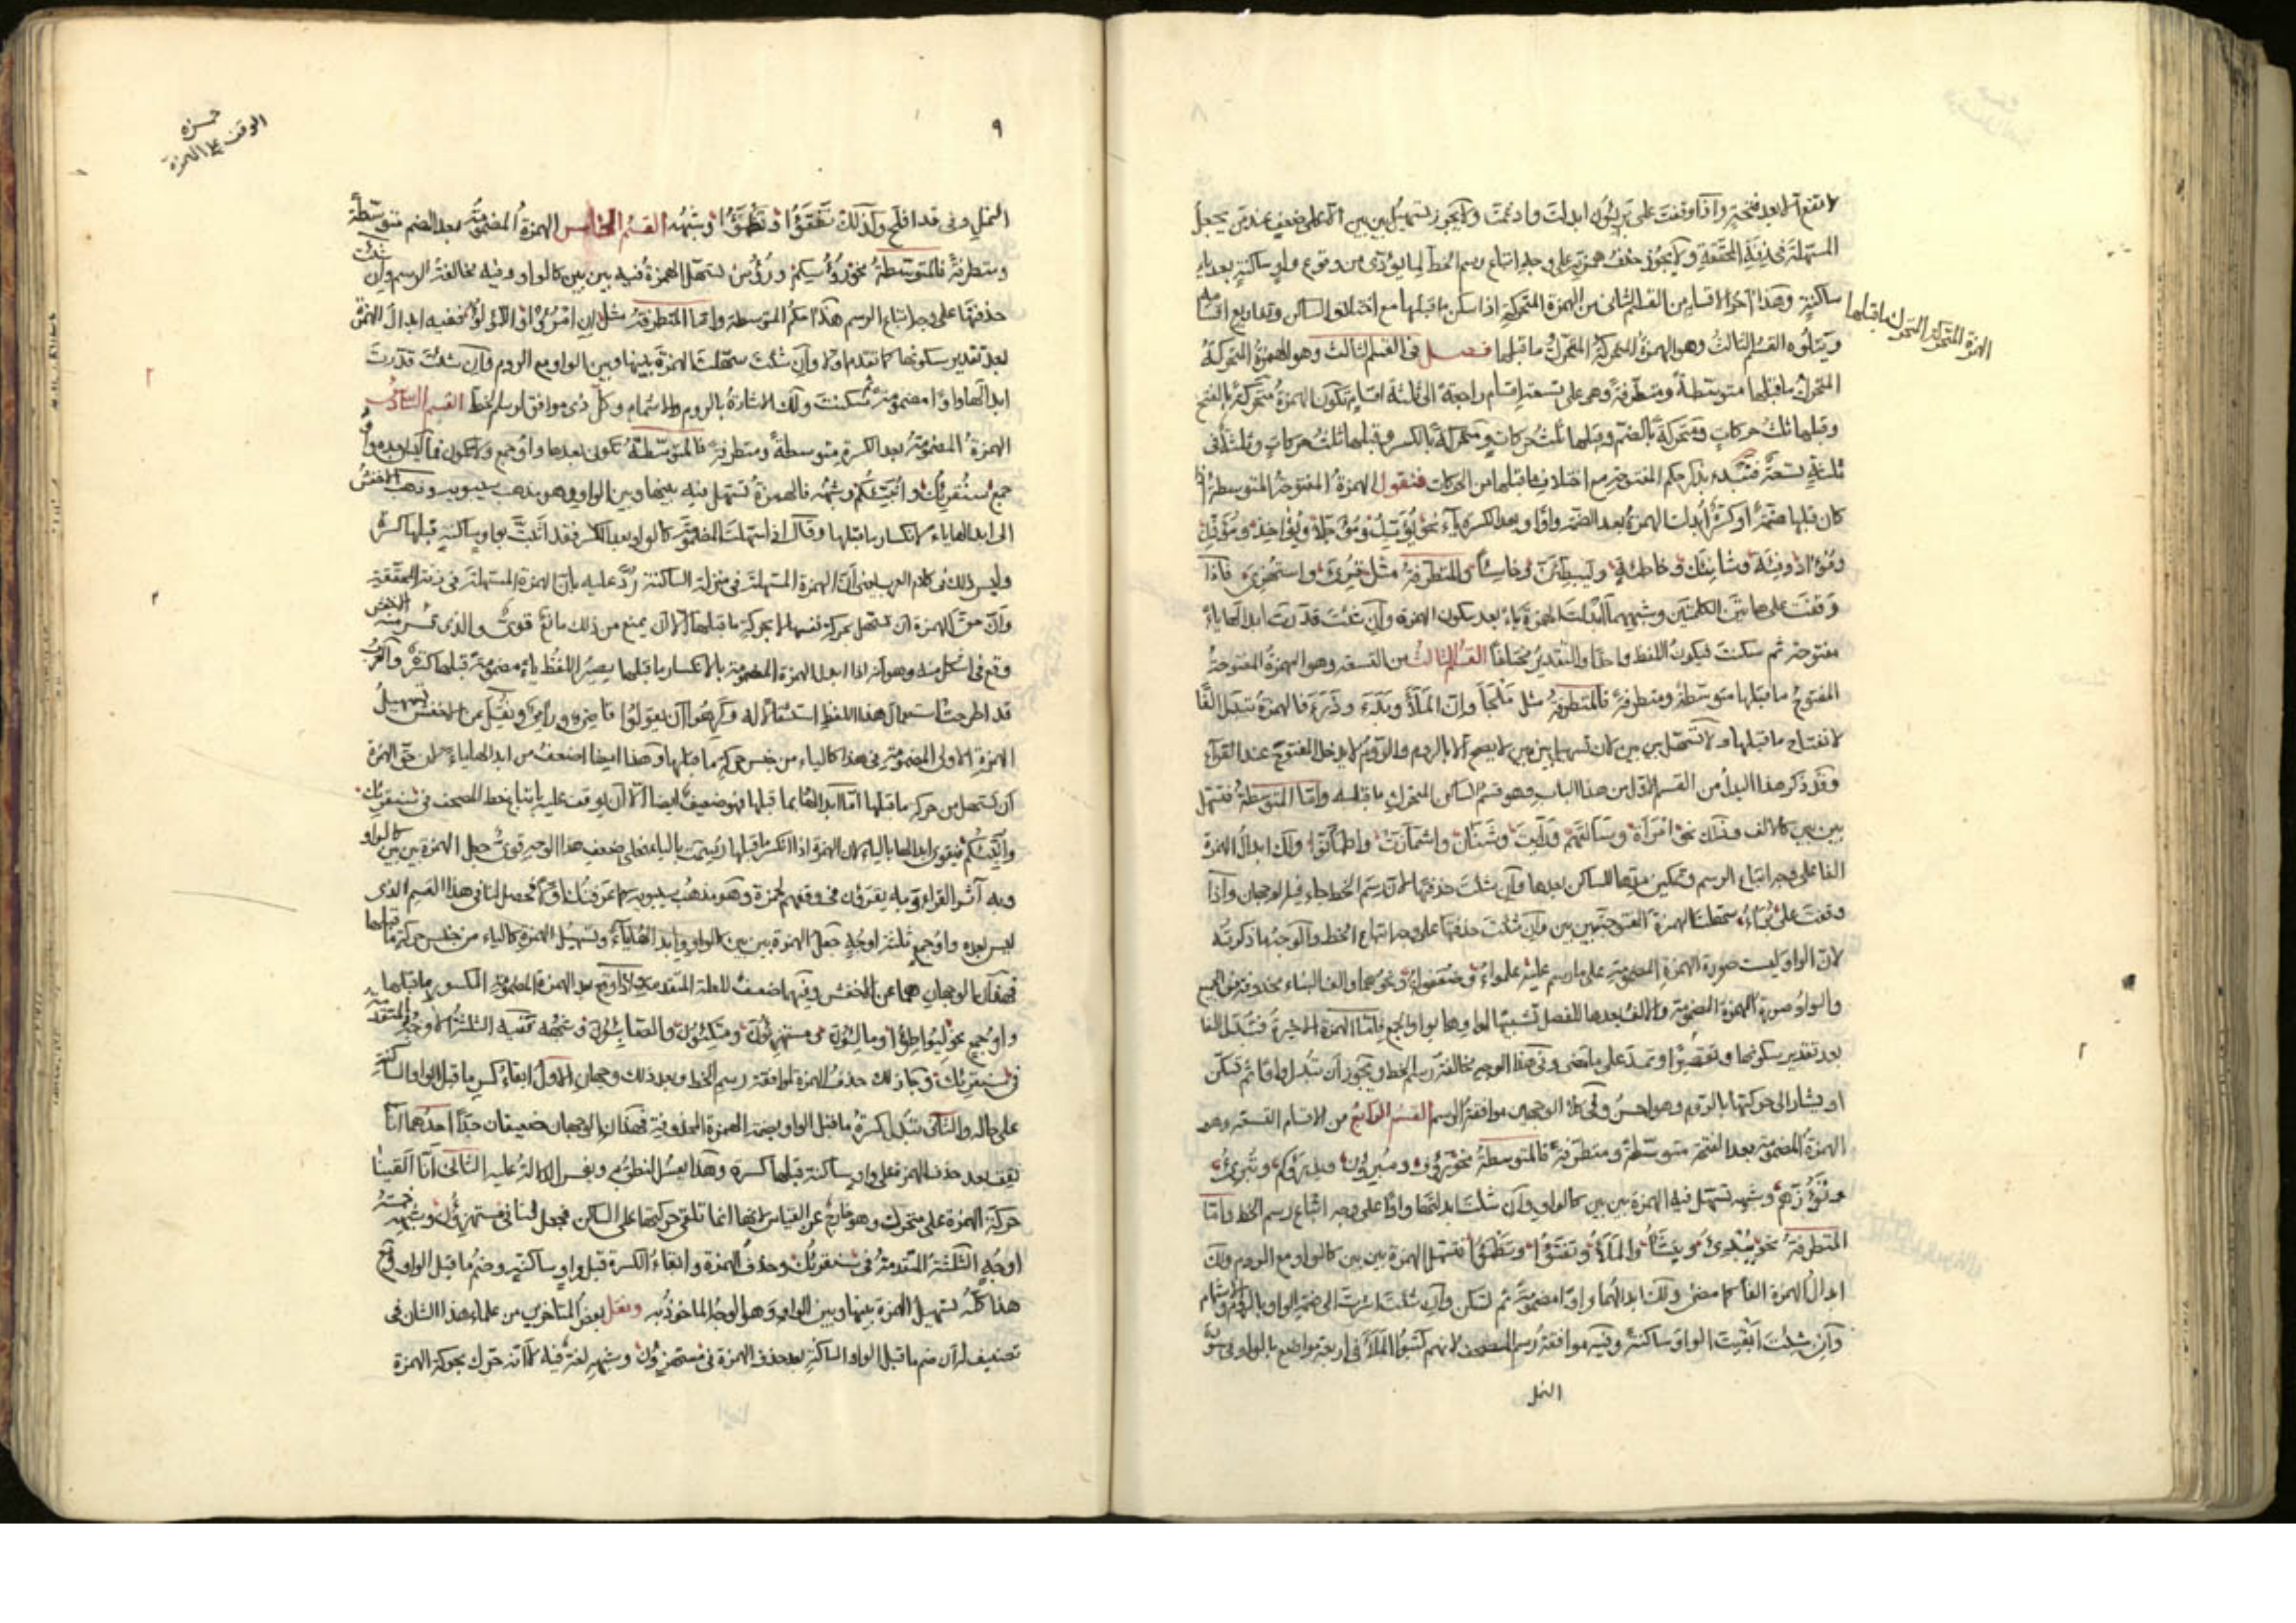 لا تقع الا بعد فتحة واذا وقفت على بريئون ابدلت وادغمت ولا يجوز تسهيل بين بين الا على ضعف عند من يجعل
المسهلة في زنة المحققة ولا يجوز حذف همزته على وجه اتباع رسم الخط لما يؤدى من وقوع واو ساكنة بعد ياء
ساكنة وهذا آخر الاقسام من القسم الثانى من الهمزة المتحركة اذا سكن ما قبلها مع اختلاف الساكن وقد اربع اقسامه
الهمزة المتحركة المتحرك ما قبلها
ويتلوه القسم الثالث وهو الهمزة المتحركة المتحرك ما قبلها فصل فى القسم الثالث وهو الهمزة المتحركة
المتحرك ما قبلها متوسطة ومتطرفة وهى على تسعة اقسام راجعة الى ثلثة اقسام تكون الهمزة متحركة بالفتح
وقبلها ثلث حركات ومتحركة بالضم وقبلها ثلث حركات ومتحركة بالكسر وقبلها ثلث حركات وثلثة فى
ثلثة تسعة فنبدء بذكر حكم المفتوحة مع اختلاف ما قبلها من الحركات فنقول الهمزة المفتوحة المتوسطة اذا
كان قبلها ضمة او كسرة ابدلت الهمزة بعد الضمة واوا وبعد الكسرة ياء نحو يؤيد ومؤجلا ويؤاخذ ومؤذن
وفئة وشانئك وخاطئة وليبطئن وخاسئا والمتطرفة مثل قرئ واستهزئ فاذا
وقفت على هاتين الكلمتين وشبههما ابدلت الهمزة ياء بعد سكون الهمزة وان شئت قدرت ابدالها ياء
مفتوحة ثم سكنت فيكون اللفظ واحدا والتقدير مختلفا القسم الثالث من التسعة وهو الهمزة المفتوحة
المفتوح ما قبلها متوسطة ومتطرفة فالمتطرفة مثل ملجأ وان الملأ وبدء وذرء فالهمزة تبدل الفا
لانفتاح ما قبلها ولا تسهل بين بين لان تسهيل بين بين لا يصح الا بالروم والروم لا يدخل المفتوح عند القراء
وقد ذكر هذا البدل من القسم الاول من هذا الباب وهو قسم الساكن المتحرك ما قبله واما المتوسطة فتسهل
بين بين كالالف وذلك نحو امرأة وسألتهم ورأيت وشنئان واشمأزت واطمأنوا ولك ابدال الهمزة
الفا على وجه اتباع الرسم وتمكين مدها للساكن بعدها وان شئت حذفتها لان رسم الخط جاء فيه الوجهان واذا
لان الواو ليست صورة الهمزة المضمومة على ما رسم عليه علمؤا وضعفؤا ونحوهما والف البناء محذوفة من الجميع
والواو صورة الهمزة المضمومة والالف بعدها للفصل تشبيها لها بواو الجمع فاما الهمزة الاخيرة فتبدل الفا
بعد تقدير سكونها وتقصر او تمد على ما مضى وفى هذا الوجه مخالفة رسم الخط ويجوز ان تبدل واوا ثم تسكن
او يشار الى حركتها بالروم وهو احسن وفى كلا الوجهين موافقة الرسم القسم الرابع من الاقسام التسعة وهو
الهمزة المضمومة بعد الفتحة متوسطة ومتطرفة فالمتوسطة نحو
وشبهه تسهل فيه الهمزة بين بين كالواو وان شئت بدلتها واوا على وجه اتباع رسم الخط واما
المتطرفة نحو يبدئ والملأ وتفتؤا وتظمؤا فتسهل الهمزة بين بين كالواو مع الروم ولك
ابدال الهمزة الفا كما مضى ولك ابدالها واوا مضمومة ثم تسكن وان شئت اشرت الى ضمة الواو بالروم والاشمام
وان شئت ابقيت الواو ساكنة وفيه موافقة رسم المصحف لانهم كتبوا الملأ فى اربعة مواضع بالواو فى سورة
النمل
٩
حمزه
الوقف على الهمزة
النمل وفى قد افلح وكذلك تفتؤا وتظمؤا وشبهه القسم الخامس الهمزة المضمومة بعد الضم متوسطة
ومتطرفة فالمتوسطة نحو برؤسكم ورؤس تسهل الهمزة فيه بين بين كالواو وفيه مخالفة الرسم وان شئت
حذفتها على وجه اتباع الرسم هذا حكم المتوسطة واما المتطرفة مثل ان امرؤ او اللؤلؤ ففيه ابدال الهمزة
بعد تقدير سكونها كما تقدم اولا وان شئت سهلت الهمزة بينها وبين الواو مع الروم وان شئت قدرت
ابدالها واوا مضمومة ثم سكنت ولك الاشارة بالروم والاشمام وكل ذى موافق لرسم الخط القسم السادس
الهمزة المضمومة بعد الكسرة متوسطة ومتطرفة فالمتوسطة تكون بعدها واو جمع وتكون فيما ليس بعده واو
جمع سنقرئك وانبئكم وشبهه فالهمزة تسهل فيه بينها وبين الواو وهو مذهب سيبويه وذهب الاخفش
الى ابدالها ياء لانكسار ما قبلها وقال اذا سهلت المضمومة كالواو بعد الكسر فقد اتيت بواو ساكنة قبلها كسرة
وليس ذلك فى كلام العرب يعنى ان الهمزة المسهلة فى منزلة الساكنة رد عليه بان الهمزة المسهلة فى زنة المحققة
وان حق الهمزة ان تسهل بحركة نفسها لا بحركة ما قبلها الا ان يمنع من ذلك مانع قوى والذى فر منه الاخفش
وقع فى اشكل منه وهو انه اذا ابدل الهمزة المضمومة ياء لانكسار ما قبلها يصير اللفظ ياء مضمومة قبلها كسرة والعرب
قد اطرحت استعمال هذا اللفظ استثقالا له وكرهوا ان يقولوا قاضيون وراميون ونقل عن الاخفش تسهيل
الهمزة الاولى المضمومة فى هذا كالياء من جنس حركة ما قبلها وهذا ايضا اضعف من ابدالها ياء لان حق الهمزة
ان تسهل من حركة ما قبلها اما ابدالها بما قبلها فهو ضعيف ايضا الا ان يوقف عليه باتباع خط المصحف فى سنقرئك
وانبئكم فيقوى ابدالها بالياء لان الهمزة اذا انكسر ما قبلها رسمت بالياء فعلى ضعف هذا الوجه قوى جعل الهمزة بين بين كالواو
وبه آثر القراء وبه يقرؤن فى وقفهم لحمزة وهو مذهب سيبويه كما عرفتك اولا فحصل لنا فى هذا القسم الذى
ليس بعده واو جمع ثلثة اوجه جعل الهمزة بين بين كالواو وابدالها ياء وتسهيل الهمزة كالياء من جنس حركة ما قبلها
فهذان الوجهان هما عن الاخفش وفيهما ضعف للعلة المتقدمة واذا وقع بعد الهمزة المضمومة المكسور ما قبلها
واو جمع نحو ليواطؤا ومالؤن ومستهزؤن ومتكئون والصابئون وشبهه ففيه الثلثة الاوجه المتقدمة
فى سنقرئك وجاز لك حذف الهمزة لموافقة رسم الخط وبعد ذلك وجهان الاول ابقاء كسر ما قبل الواو الساكنة
على حاله والثانى تبدل كسرة ما قبل الواو بضمة الهمزة المحذوفة فهذان الوجهان ضعيفان جدا احدهما انا
نقف بعد حذف الهمزة على واو ساكنة قبلها كسرة وهذا يعسر النطق به ويعسر الدلالة عليه الثانى انا القينا
حركة الهمزة على متحرك وهو خارج عن القياس لانها انما تلقى حركتها على الساكن فحصل لنا فى مستهزؤن وشبهه خمسة
اوجه الثلثة المتقدمة فى سنقرئك وحذف الهمزة وابقاء الكسرة قبل واو ساكنة وضم ما قبل الواو
هذا كله تسهيل الهمزة بينها وبين الواو وهو الوجه الماخوذ به ونقل بعض المتاخرين من علماء هذا الشان فى
تصنيف له ان ضم ما قبل الواو الساكنة بعد حذف الهمزة فى مستهزؤن وشبهه لغة فيه لا انه حرك بحركة الهمزة